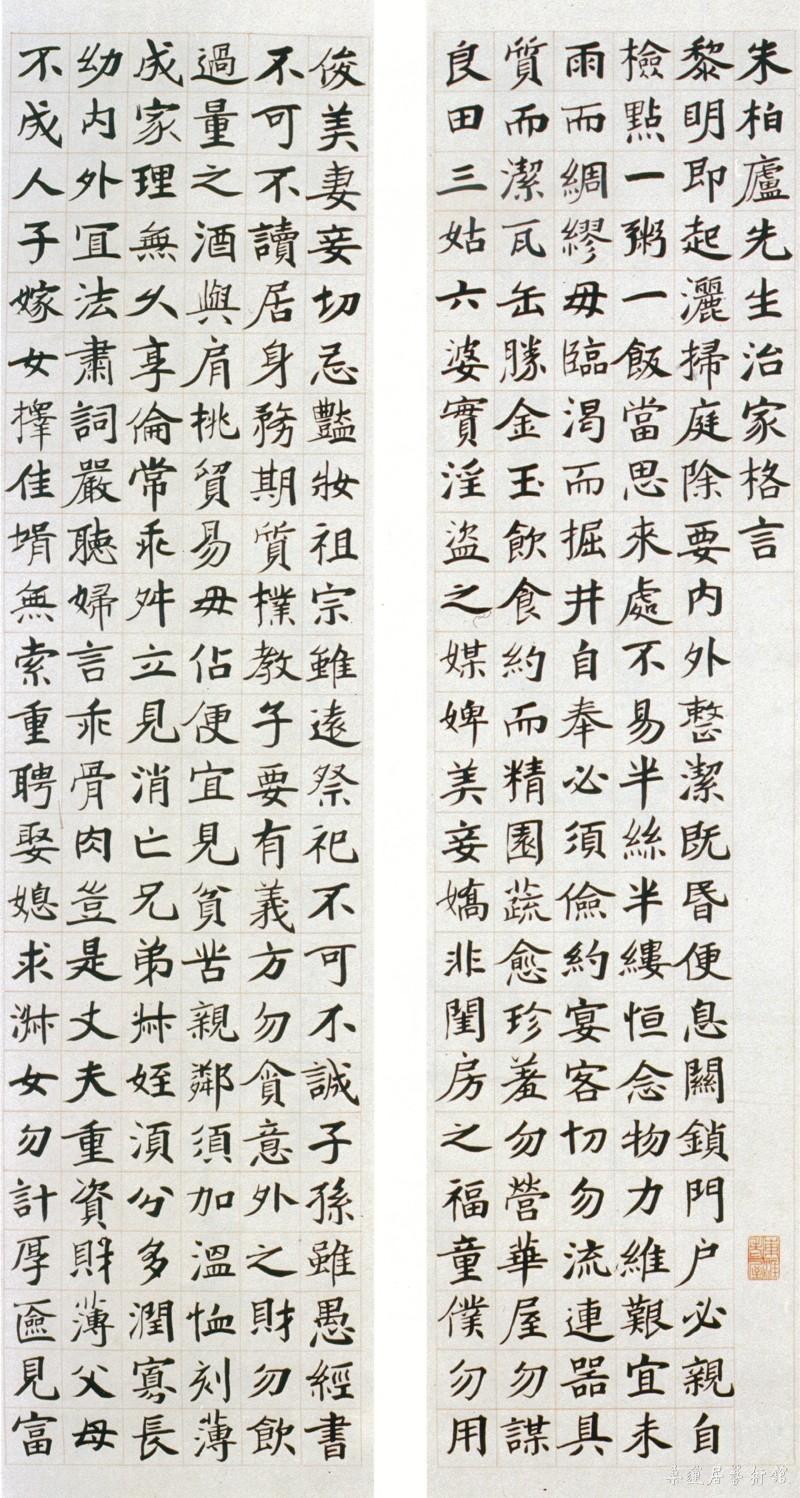 朱柏廬先生治家格言
黎明即起灑掃庭除要內外整潔既昬便息關鎖門户必親自
檢點一粥一飯當思來處不易半絲半縷恒念物力維艱宜未
雨而綢繆毋臨渴而掘井自奉必須儉約宴客切勿流連器具
質而潔瓦缶勝金玉飲食約而精園蔬愈珍羞勿營華屋勿謀
良田三姑六婆實淫盜之媒婢美妾嬌非閨房之福童僕勿用
俊美妻妾切忌豔妝祖宗雖遠祭祀不可不誠子孫雖愚經書
不可不讀居身務期質樸教子要有義方勿貪意外之財勿飲
過量之酒與肩挑貿易毋佔便宜見貧苦親鄰須加溫恤刻薄
成家理無久享倫常乖舛立見消亡兄弟叔姪須分多潤寡長
幼內外冝法肅詞嚴聽婦言乖骨肉豈是丈夫重資財薄父母
不成人子嫁女擇佳壻無索重聘娶媳求淑女勿計厚奩見富